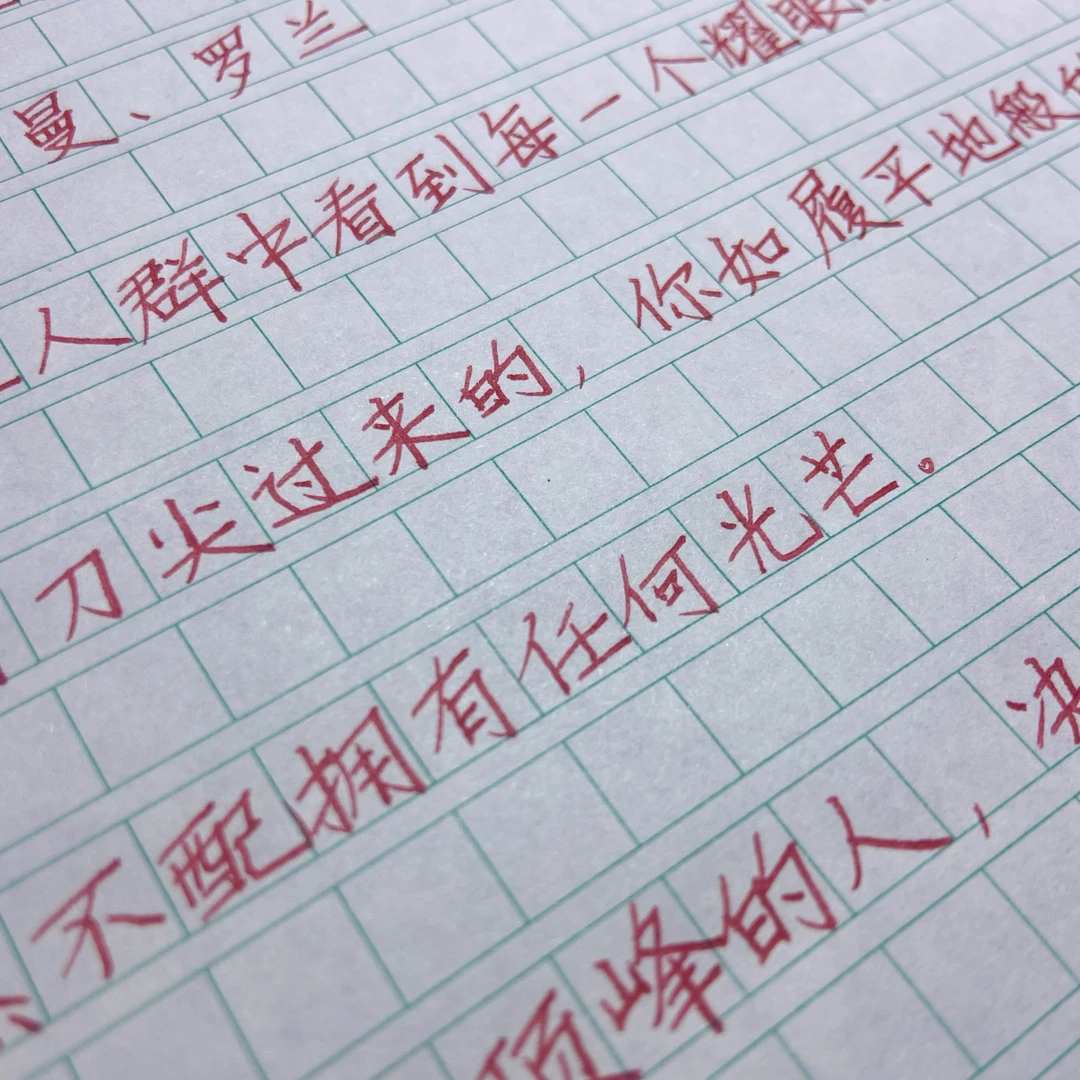 曼、罗兰
人群中看到每一个耀眼
刀尖过来的，你如履平地般
不配拥有任何光芒。
顶峰的人，决